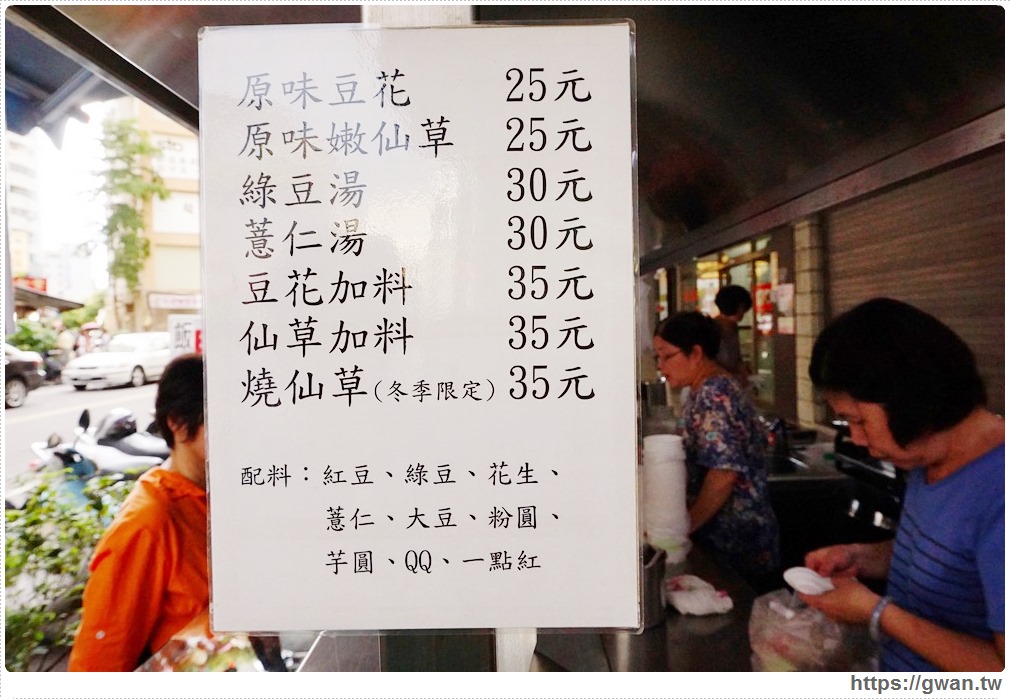 原味豆花 25元
原味嫩仙草 25元
綠豆湯 30元
薏仁湯 30元
豆花加料 35元
仙草加料 35元
燒仙草(冬季限定) 35元
配料：紅豆、綠豆、花生、
薏仁、大豆、粉圓、
芋圓、QQ、一點紅
飯
https://gwan.tw